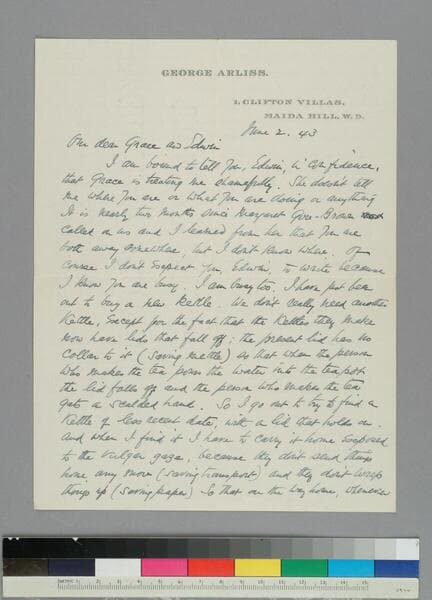 GEORGE ARLISS.
1, CLIFTON VILLAS,
MAIDA HILL, W. 9.
June 2. 43
Our dear Grace and Edwin
I am bound to tell you, Edwin, in confidence,
that Grace is treating me shamefully. She doesn't tell
me where you are or what you are doing or anything
It is nearly two months since Margaret Gore-Brown
called on us and I learned from her that you are
both away somewhere, but I don't know where. Of
course I don't expect you, Edwin, to write because
I know you are busy. I am busy too. I have just been
out to buy a new kettle. We don't really need another
kettle, except for the fact that the kettles they make
now have lids that fall off; the present lid has no
collar to it (saving metal) so that when the person
who makes the tea pours the water into the teapot
the lid falls off and the person who makes the tea
gets a scalded hand. So I go out to try to find a
kettle of less recent date, with a lid that holds on.
And when I find it I have to carry it home exposed
to the vulgar gaze, because they don't send things
home any more (saving transport) and they don't wrap
things up (saving paper) so that on the way home, whenever